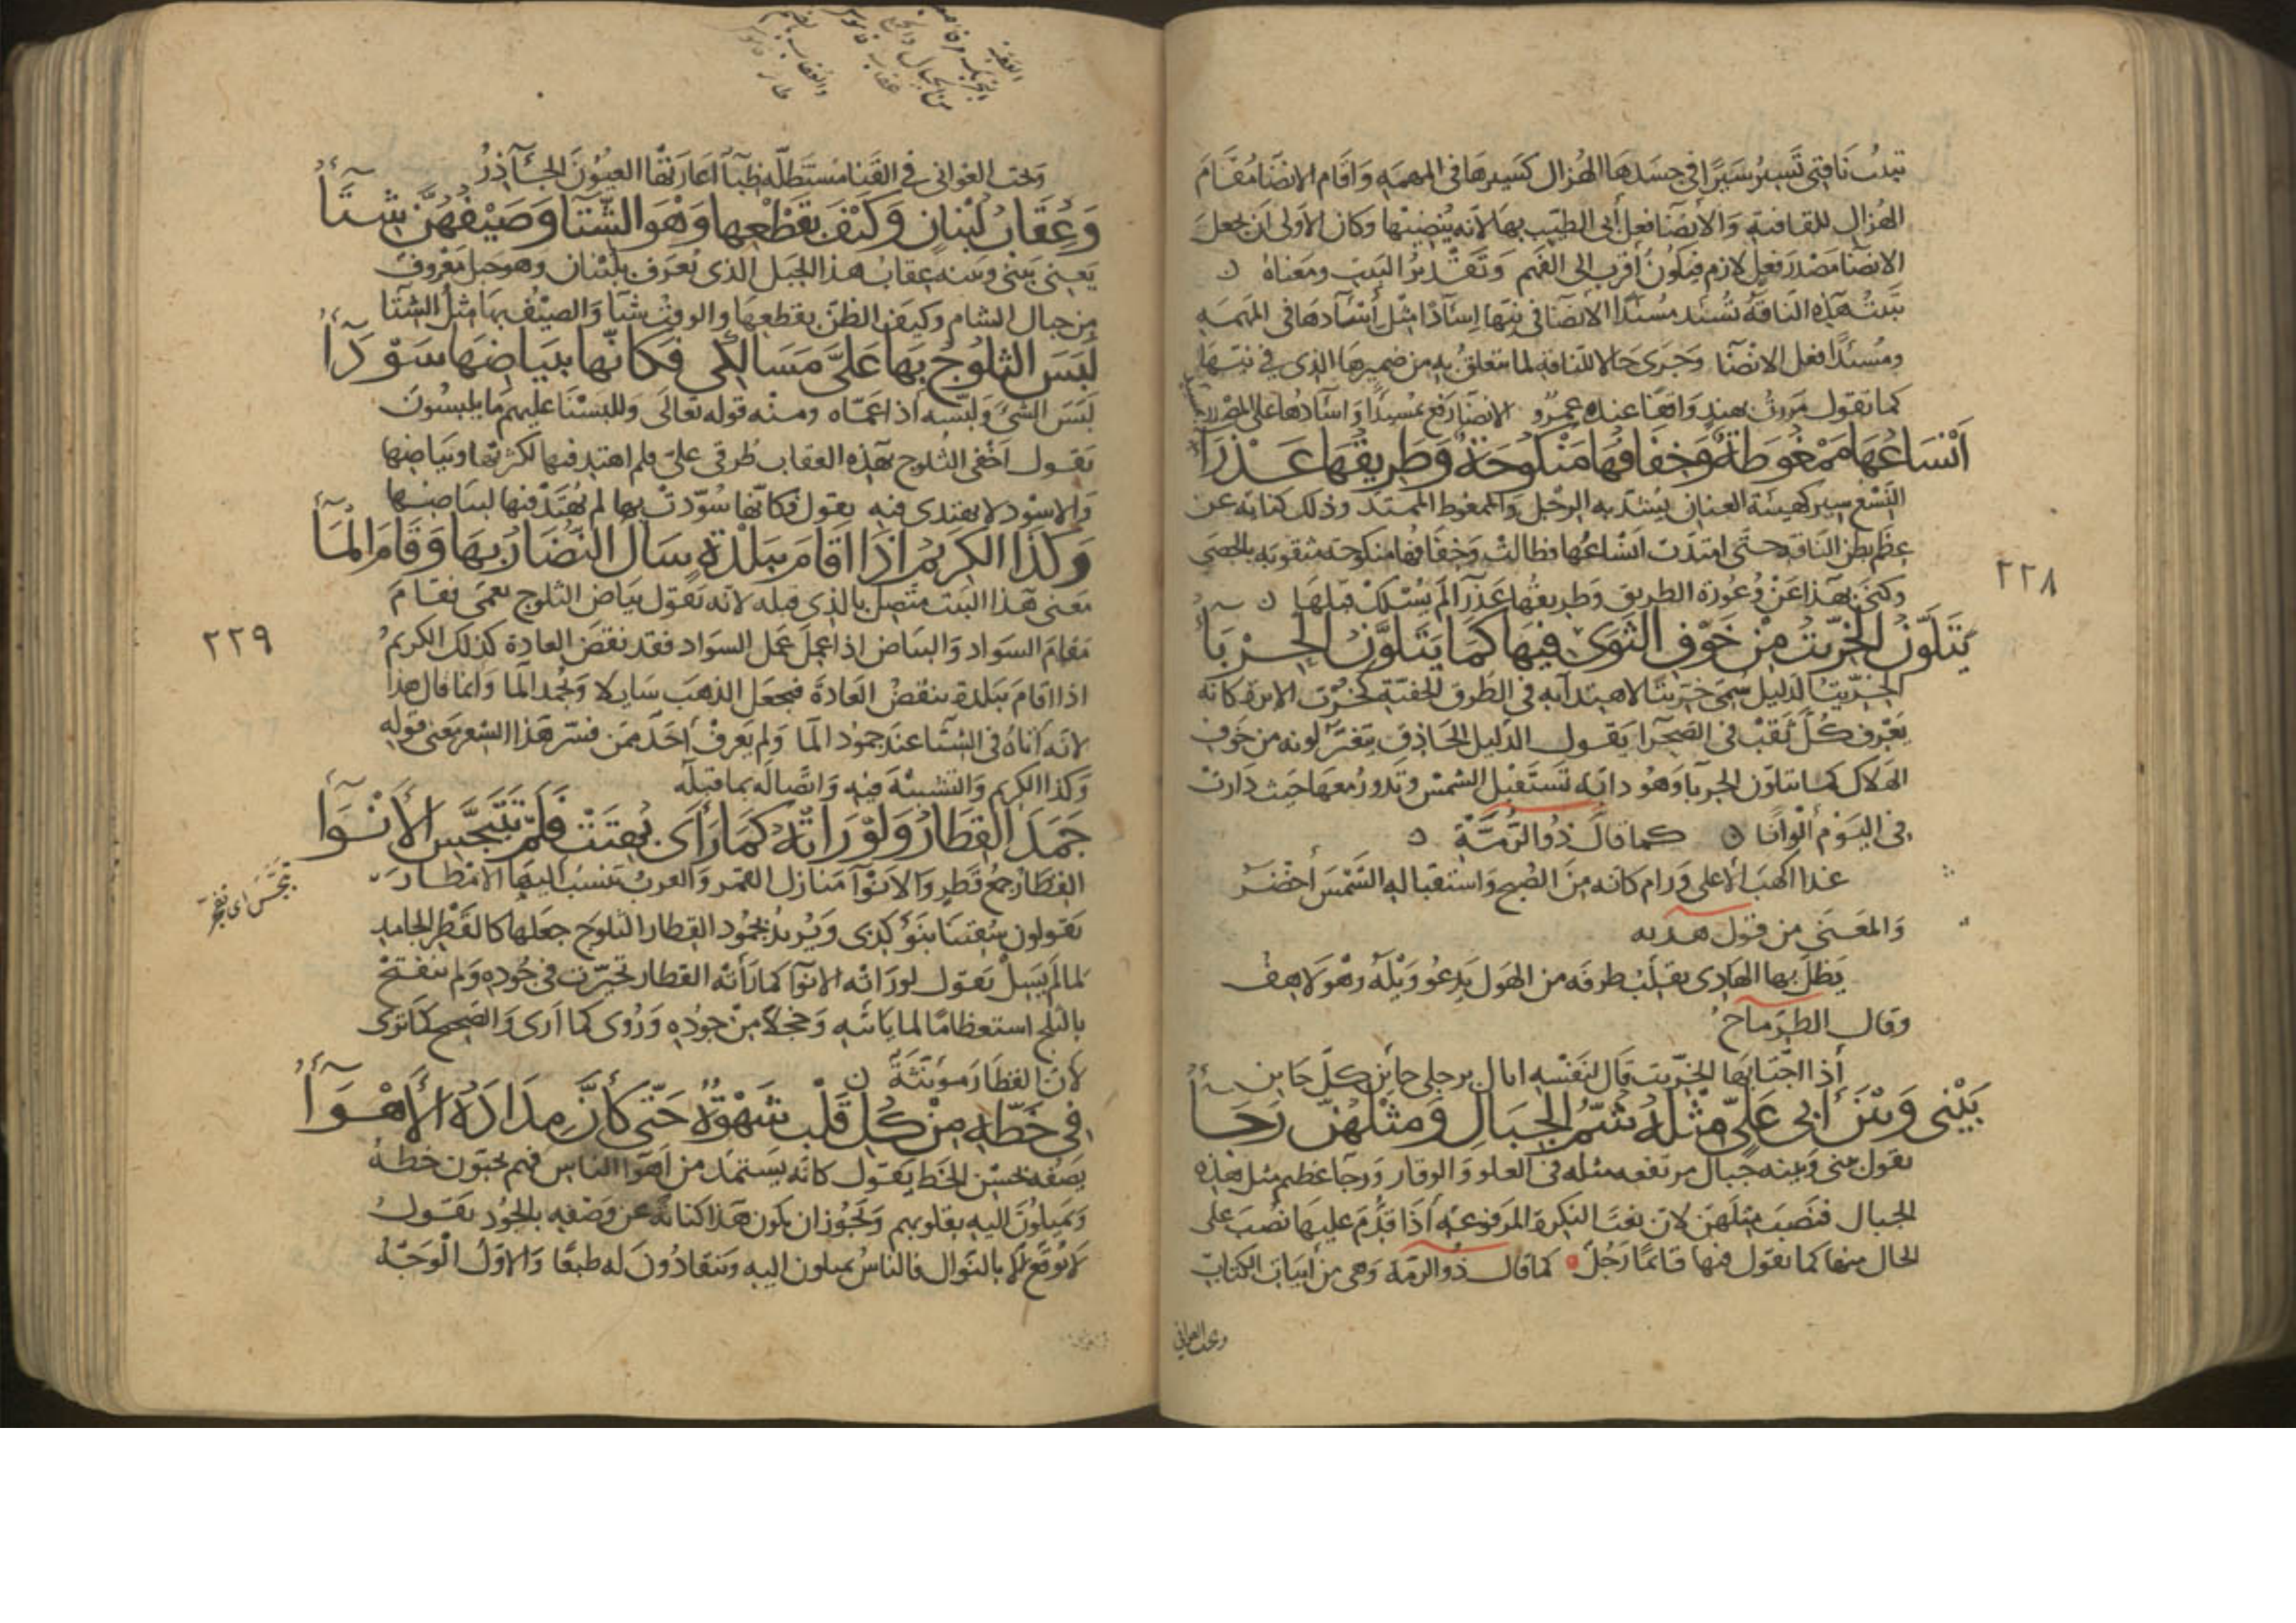 تبيت ناقتي تسير سيرًا في جسدها الهزال كسيرها في المهمه وأقام الانضا مقام
الهزال للقافية والانضا فعل أبى الطيب بها لأنه ينضيها وكان الأولى أن يجعل
الانضا مصدر فعل لازم فيكون أقرب الى الفهم وتقدير البيت ومعناه ن
تبيت هذه الناقة تسئد مسئدًا الانضا في نيها إسآدًا مثل أسآدها في المهمه
ومسئدًا فعل الانضا وجرى حالا للناقة لما تعلق به من ضميرها الذى في نيها
كما تقول مررت بهند واقفا عندها عمرو الانضا رفع بمسئدًا وإسآدها على المصدر
أنساعها ممغوطة وخفافها منكوحة وطريقها عذرآ
النسع سير كهيئة العنان يشد به الرحل والممغوط الممتد وذلك كناية عن
عظم بطن الناقة حتى امتدت انساعها فطالت وخفافها منكوحة مثقوبه بالحصى
وكنى بهذا عن وعورة الطريق وطريقها عذرآ لم يسلك قبلها ن
يتلون الخريت من خوف التوى فيها كما يتلون الحربآ
الخريت الدليل سمى خريتا لاهتدآيه في الطرق الخفية كخرت الابرة كانه
يعرف كل ثقب في الصحرا يقول الدليل الحاذق يتغير لونه من خوف
الهلاك كما يتلون الحربا وهو دابه تستقبل الشمس وتدور معها حيث دارت
في اليوم ألوانا ن كما قال ذو الرمة ن
غدا اكهب الأعلى وراح كانه من الضح واستقباله الشمس أخضر
والمعنى من قول هدبه
يظل بها الهادى يقلب طرفه من الهول يدعو ويله وهو لاهف
وقال الطرماح
أذا اجتابها الخريت قال لنفسه اتاك برجلى حائن كل حاين
بيني وبين أبى على مثله شم الجبال ومثلهن رجآ
يقول بيني وبينه جبال مرتفعه مثله في العلو والوقار ورجا عظيم مثل هذه
الجبال فنصب مثلهن لان نعت النكرة المرفوعه أذا قدم عليها نصب على
الحال منها كما تقول فيها قائمًا رجل كما قال ذو الرمة وهي من أبيات الكتاب
وتحت العوالي
٢٢٨
العقبة
وتحت العوالى في القنا مستظلة ظبآ أعارتها العيون الجآذر
وعقاب لبنان وكيف بقطعها وهو الشتا وصيفهن شتآ
يعني بيني وبينه عقاب هذا الجبل الذى يعرف بلبنان وهو جبل معروف
من جبال الشام وكيف الظن بقطعها والوقت شتا والصيف بها مثل الشتا
لبس الثلوج بها على مسالكى فكانها ببياضها سودآ
لبس الشئ ولبسه اذا عماه ومنه قوله تعالى وللبسنا عليهم ما يلبسون
يقول اخفى الثلوج بهذه العقاب طرقى على فلم اهتد فيها لكثرتها وبياضها
والاسود لا يهتدى فيه يقول فكانها سودت بها لم يهتد فيها لبياضها
وكذا الكريم إذا اقام ببلدة سال النضار بها وقام المآ
معنى هذا البيت متصل بالذى قبله لانه يقول بياض الثلوج يعمى فقام
مقام السواد والبياض اذا عمل عمل السواد فقد نقض العادة كذلك الكريم
اذا اقام ببلدة ينقض العادة فيجعل الذهب سايلا ويجمد المآ وانما قال هذا
لانه أتاه في الشتا عند جمود المآ ولم يعرف أحد ممن فسر هذا الشعر معنى قوله
وكذا الكريم والتشبيه فيه واتصاله بما قبله
جمد القطار ولو رأته كما رأى بهتت فلم تتبجس الأنوآ
تتبجس اى تنفجر
القطار جمع قطر والانوآ منازل القمر والعرب تنسب اليها الامطار
يقولون سقينا بنوء كذى ويريد بجمود القطار الثلوج جعلها كالقطر الجامد
لما لم يسل يقول لو رأته الانوآ كما رأته القطار تحيرت في جوده ولم تنفتح
بالثلج استعظامًا لما ياتيه وخجلا من جوده وروى كما أرى والصحيح كما ترى
لان القطار مؤنثة ن
في خطه من كل قلب شهوة حتى كأن مداده الأهوآ
يصفه بحسن الخط يقول كانه يستمد من أهوا الناس فهم يحبون خطه
ويميلون اليه بقلوبهم ويجوز ان يكون هذا كناية عن وصفه بالجود يقول
لا يوقع الا بالنوال فالناس يميلون اليه وينقادون له طبعًا والاول الوجه
٢٢٩